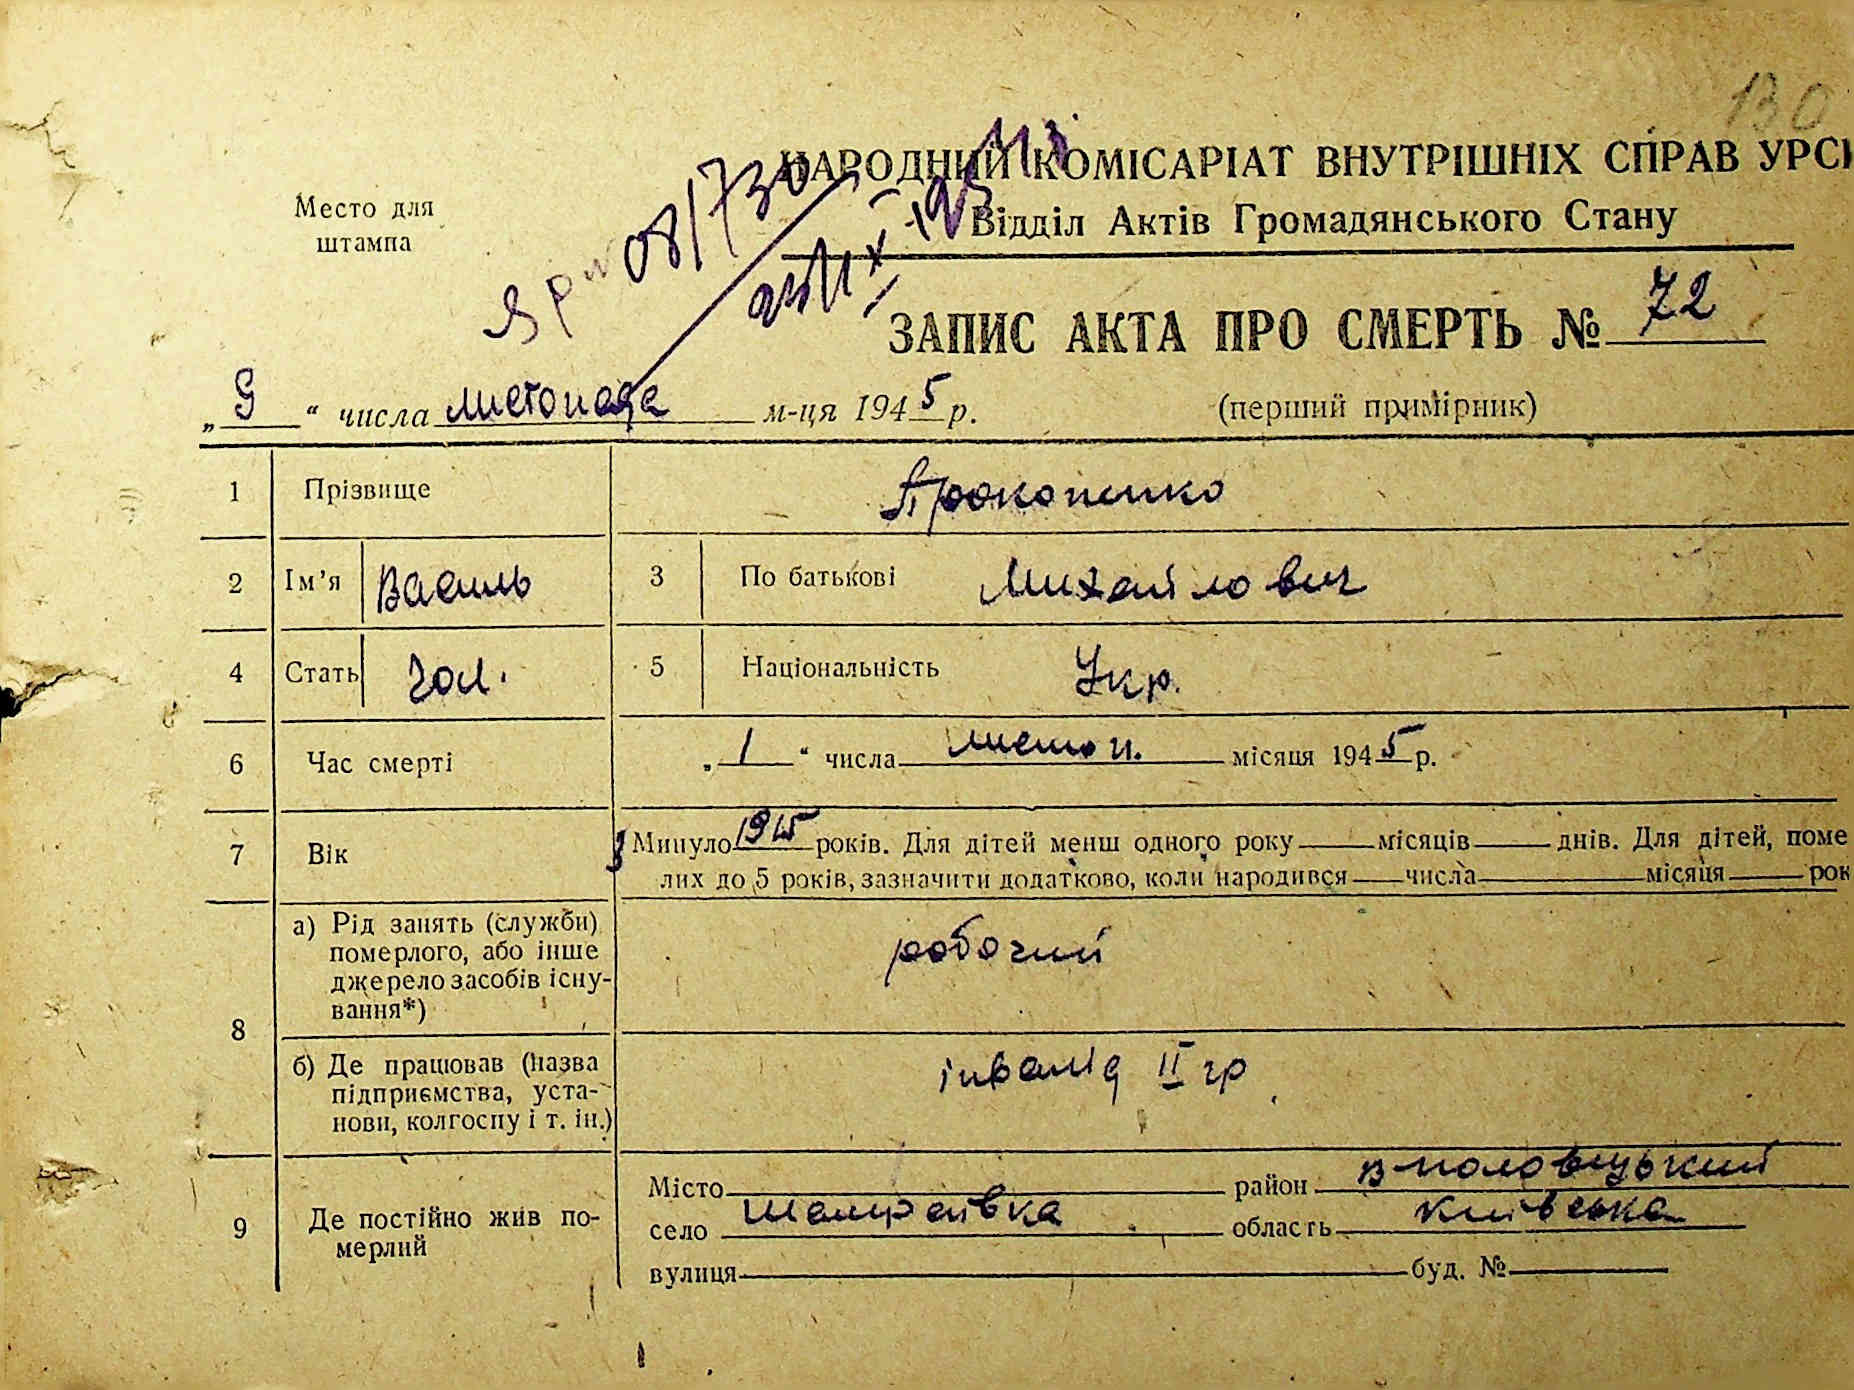 130
НАРОДНИЙ КОМІСАРІАТ ВНУТРІШНІХ СПРАВ УРСР
Відділ Актів Громадянського Стану
Место для
штампа
08/730
ЗАПИС АКТА ПРО СМЕРТЬ № 72
„9“ числа листопада м-ця 1945 р. (перший примірник)
1 Прізвище Прокопенко
2 Ім’я Василь 3 По батькові Михайлович
4 Стать чол. 5 Національність Укр.
6 Час смерті „1“ числа листоп. місяця 1945 р.
7 Вік Минуло 1915 років. Для дітей менш одного року місяців днів. Для дітей, поме
лих до 5 років, зазначити додатково, коли народився числа місяця рок
8 а) Рід занять (служби) робочий
померлого, або інше
джерело засобів існу-
вання*)
б) Де працював (назва інвалід II гр
підприємства, уста-
нови, колгоспу і т. ін.)
9 Де постійно жив по-
мерлий
Місто район Вполовецький
село Шамраївка область Київська
вулиця буд. №